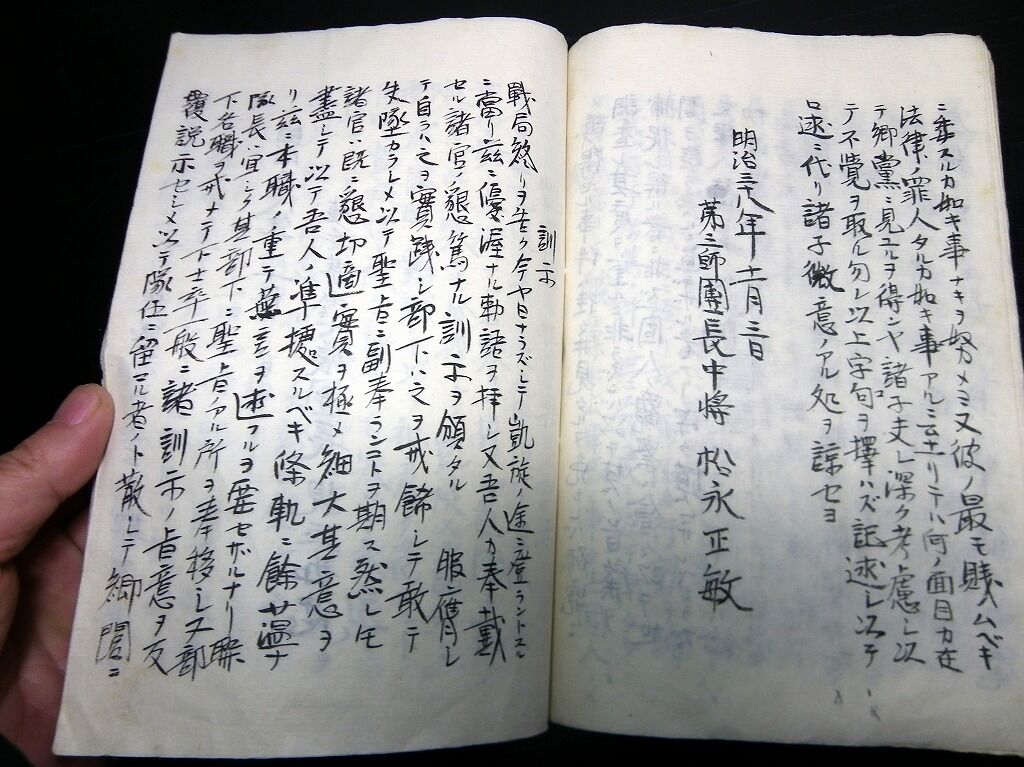 ニ乗スルカ如キ事ナキヲ努メミ又彼ノ最モ賤ムベキ
法律ノ罪人タルカ如キ事アルニ云リテハ何ノ面目カ在
テ郷黨ニ見ユルヲ得ンヤ諸子夫レ深ク考慮シ次
テ不覚ヲ取ル勿レ以上字句ヲ擇ハズ記述シ以テ
口述ニ代リ諸子微意ノアル処ヲ諒セヨ
明治三十八年十一月三日
第三師團長中將 松永正敏
訓示
戦局終リヲ告ク今ヤ日ナラズシテ凱旋ノ途ニ登ラントスル
ニ當リ茲ニ優渥ナル勅語ヲ拝シ又吾人カ奉戴
セル諸官ノ懇篤ナル訓示ヲ領タル 服膺シ
テ自ラハ之ヲ實践シ部下ハ之ヲ戒飭シテ敢テ
失墜カラシメ以テ聖旨ニ副奉ランコトヲ期ス然レモ
諸官ハ既ニ懇切適實ヲ極メ細大其意ヲ
盡シテ以テ吾人ノ準據スルベキ條軌ニ餘薀ナ
リ茲ニ本職ノ重テ蕪言ヲ述フルヲ要セザルナリ聯
隊長ハ宜シク其部下ニ聖旨ノアル所ヲ奉移シ又部
下各職ヲ戒メテ下士卒一般ニ諸訓示ノ旨意ヲ反
覆説示セシメ以テ隊伍ニ留ル者ノト散シテ郷閭ニ